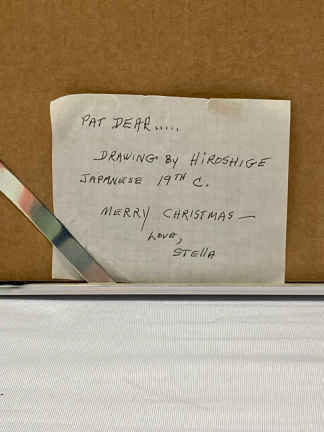 PAT DEAR.....
DRAWING BY HIROSHIGE
JAPANESE 19TH C.
MERRY CHRISTMAS —
LOVE,
STELLA